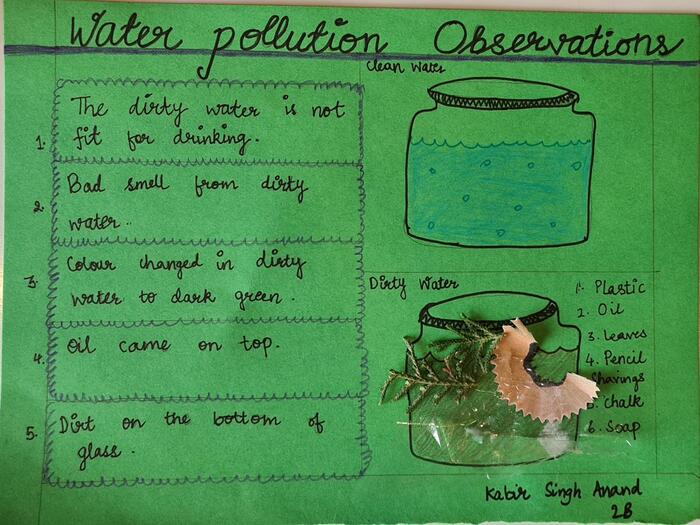 Water pollution Observations
1. The dirty water is not
fit for drinking.
2. Bad smell from dirty
water..
3. Colour changed in dirty
water to dark green.
4. Oil came on top.
5. Dirt on the bottom of
glass.
Clean Water
Dirty Water
1. Plastic
2. Oil
3. Leaves
4. Pencil
Shavings
5. Chalk
6. Soap
Kabir Singh Anand
2B